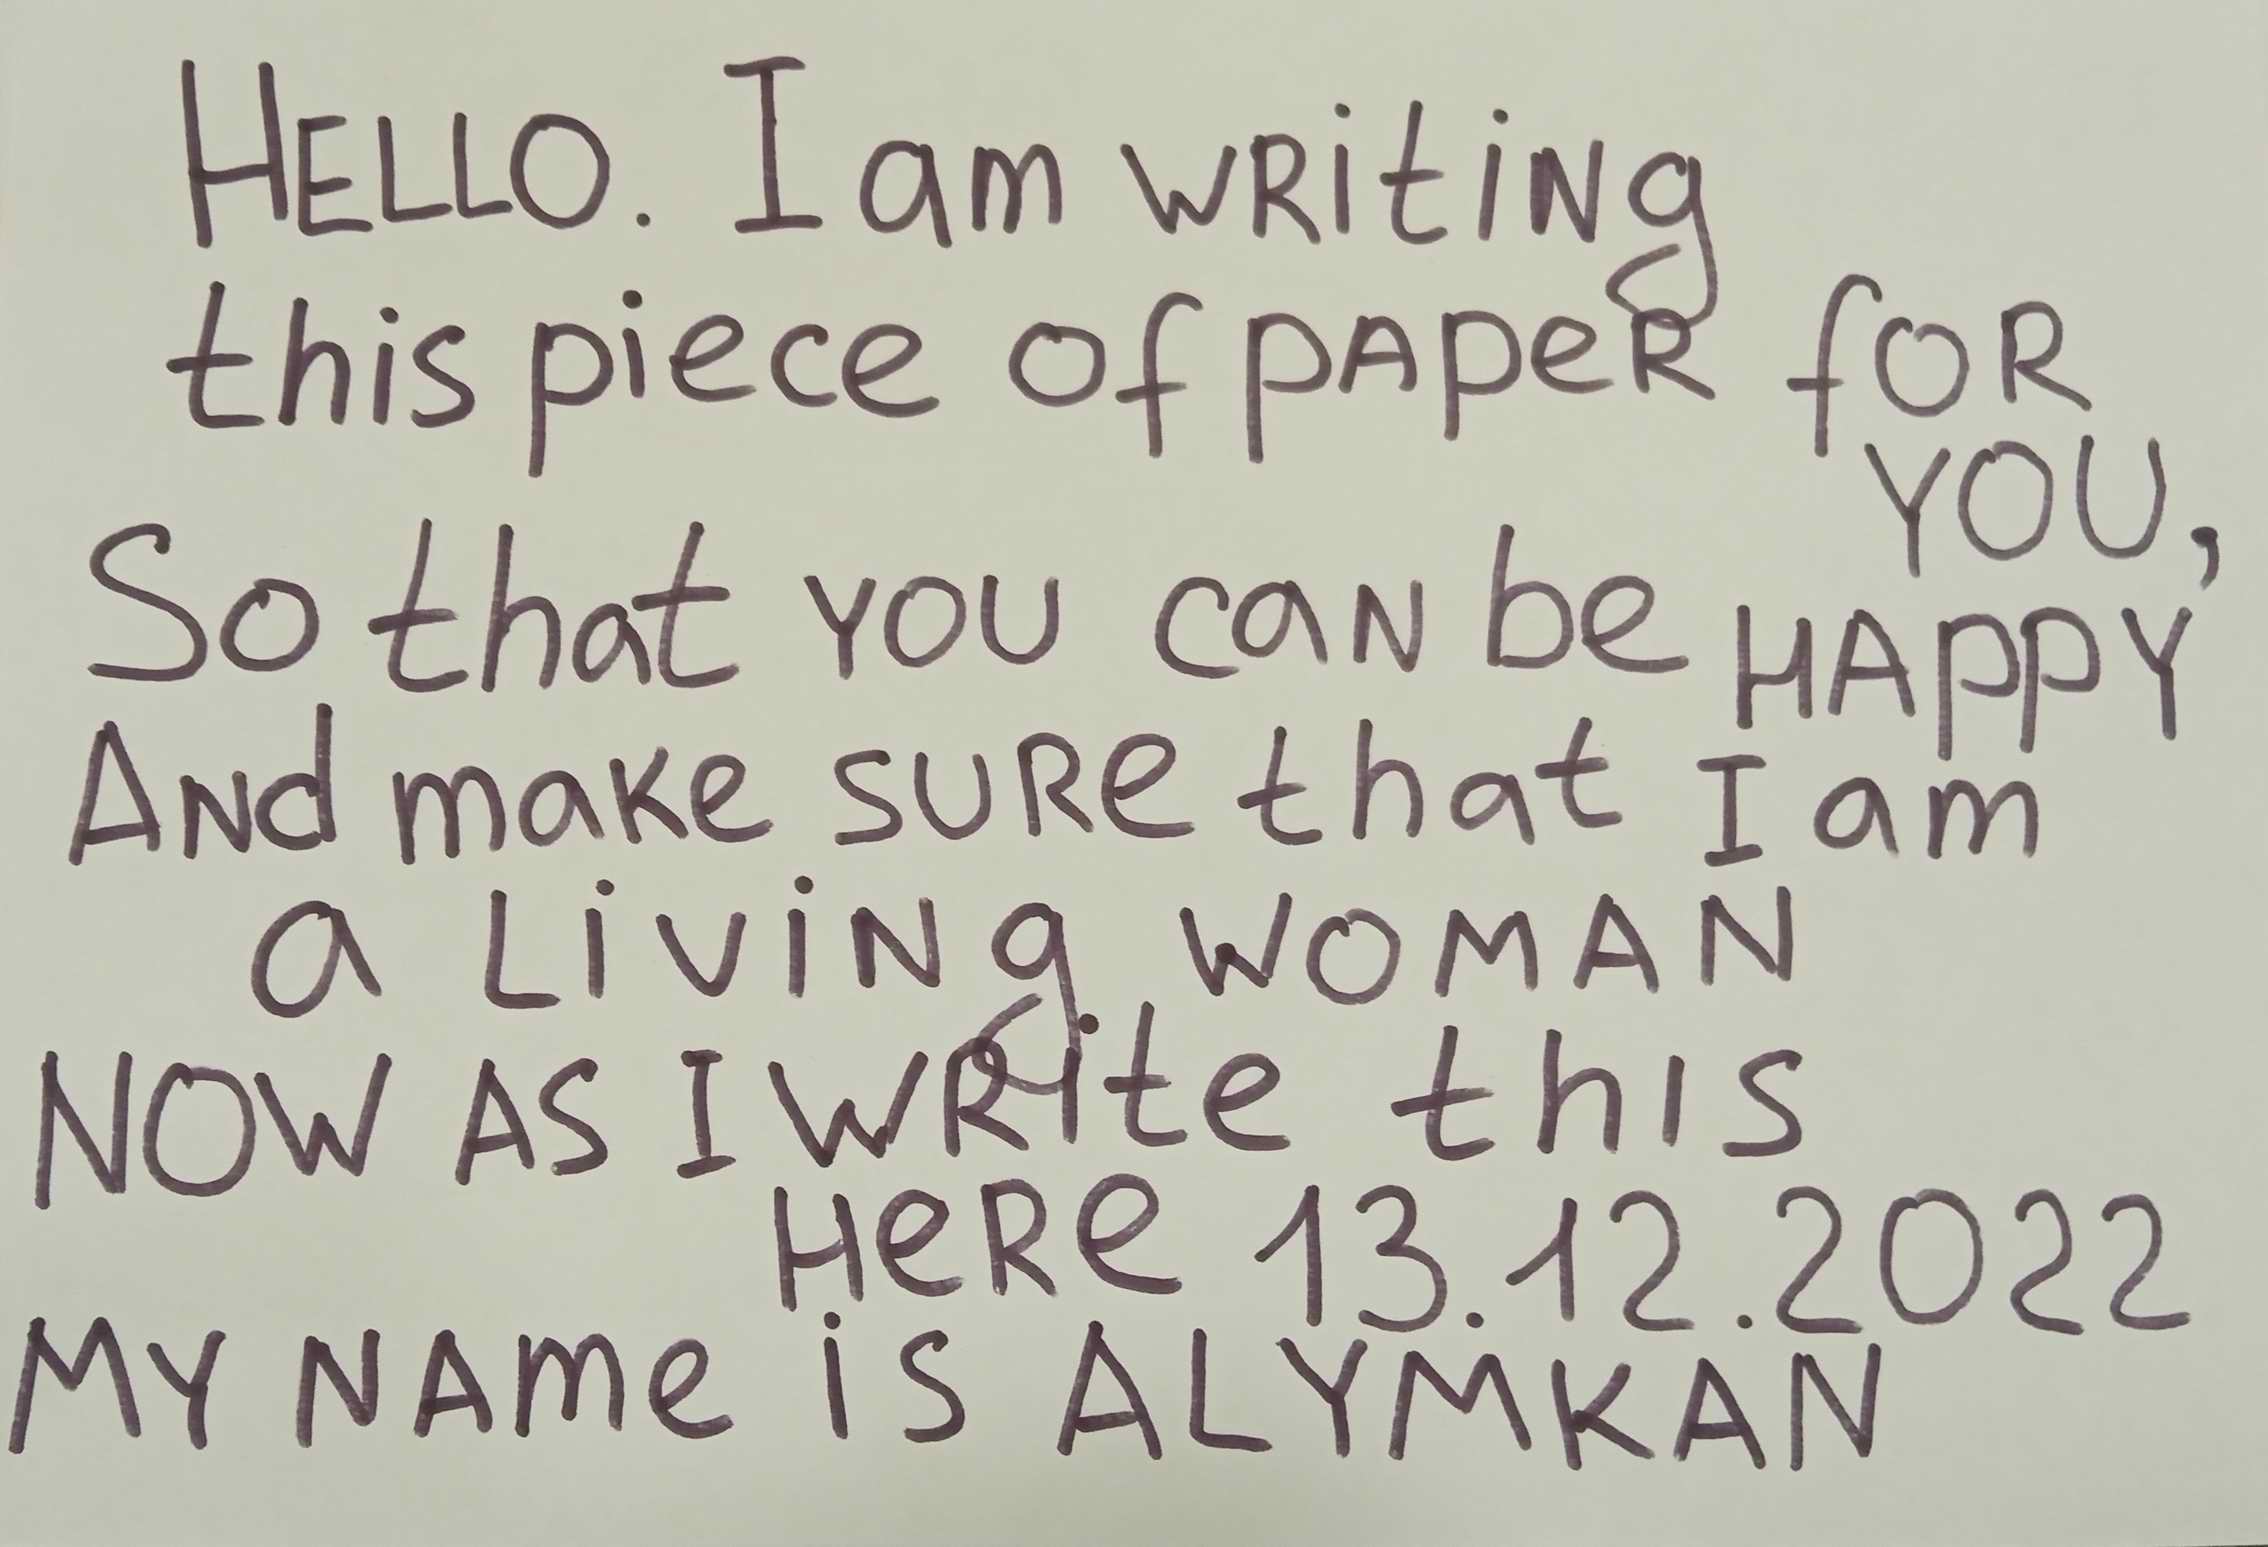 HELLO. I am WRitiNg
this piece of pApeR foR
YOU,
So that you caN be HAppY
ANd maKe SURe that I am
a LiViNg WOMAN
NOW AS I WRite thIS
HeRe 13.12.2022
MY NAme iS ALYMKAN